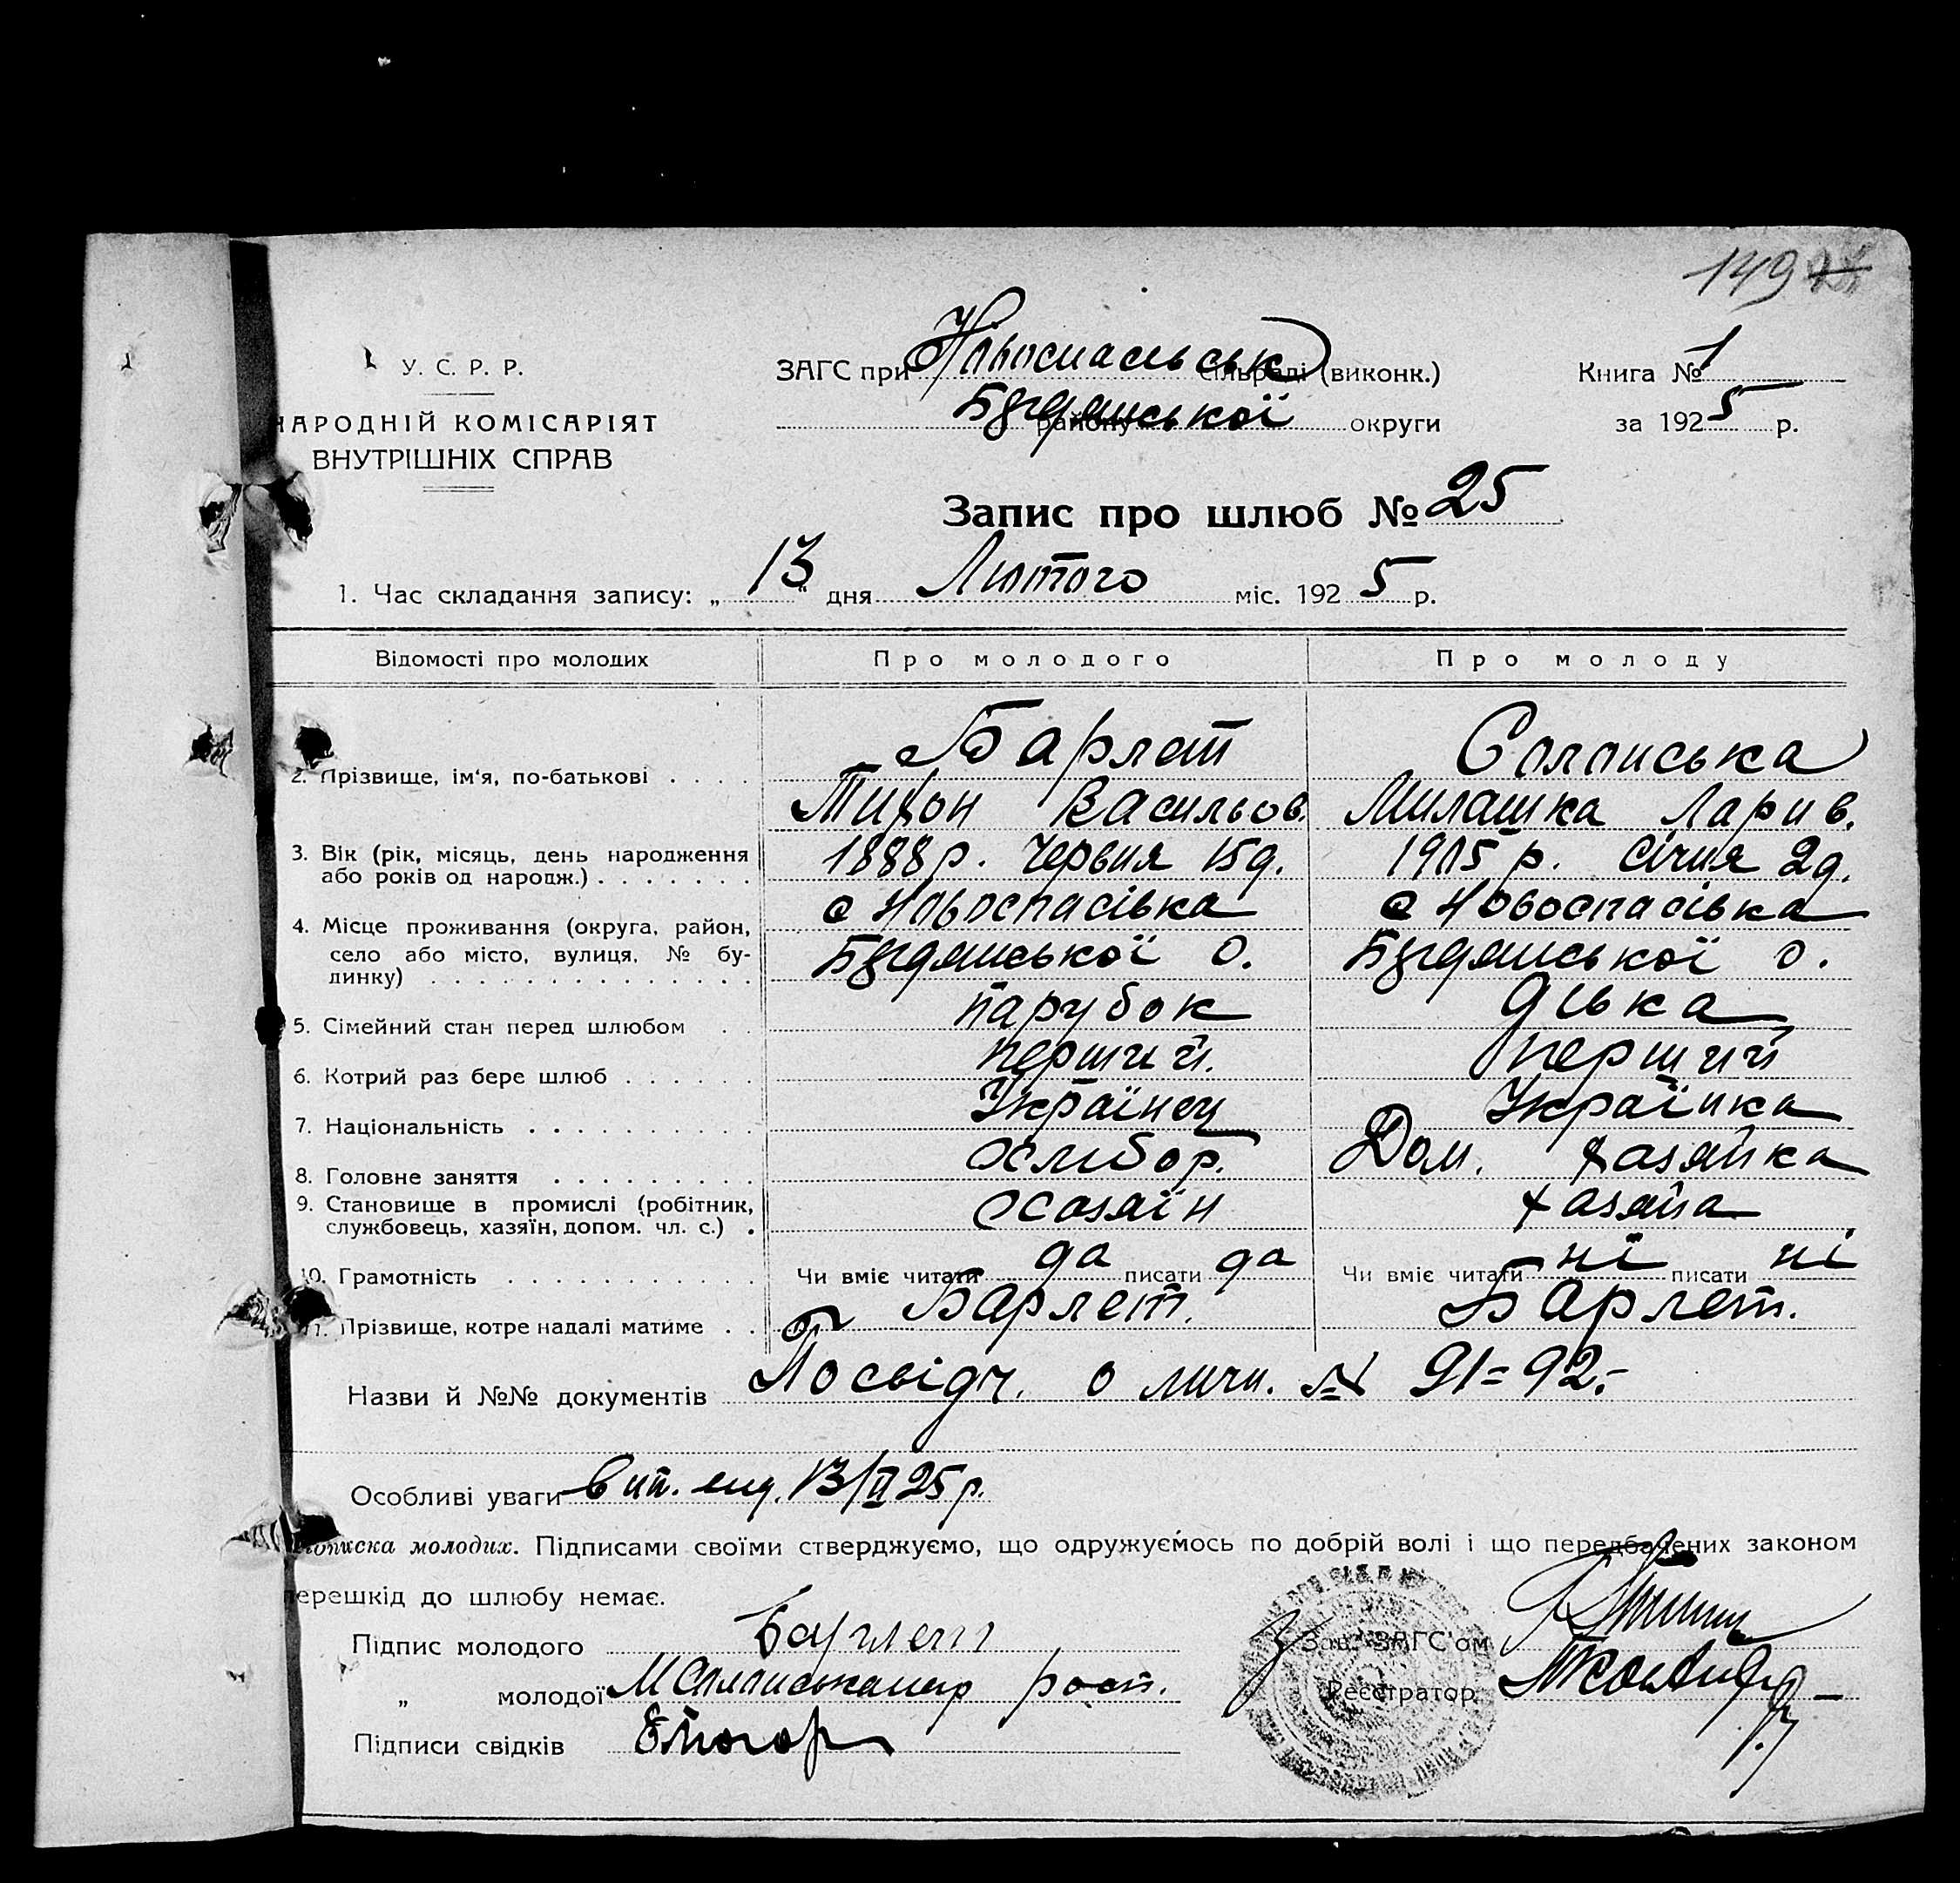 149
У. С. Р. Р.
НАРОДНІЙ КОМІСАРІЯТ
ВНУТРІШНІХ СПРАВ
ЗАГС при Новоспасівськ Сільраді (виконк.)
району Бердянської округи
Книга № 1
за 1925 р.
Запис про шлюб № 25
1. Час складання запису: „13“ дня Лютого міс. 1925 р.
Відомості про молодих Про молодого Про молоду
2. Прізвище, ім'я, по-батькові . . . . Барлет
Тихон Васильов. Милашка Ларив.
3. Вік (рік, місяць, день народження або років од народж.) . . . . . . . 1888 р. Червня 15 д. 1905 р. Січня 2 д.
4. Місце проживання (округа, район, село або місто, вулиця, № будинку) . . . . . . . . . . . . . . с Новоспасівка с Новоспасівка
Бердянської о. Бердянської о.
5. Сімейний стан перед шлюбом . . парубок дівка
6. Котрий раз бере шлюб . . . . . . перший. перший
7. Національність . . . . . . . . . . Українец Українка
8. Головне заняття . . . . . . . . . хлибор. Дом. хазяйка
9. Становище в промислі (робітник, службовець, хазяїн, допом. чл. с.) . Хазяїн хазяйка
10. Грамотність . . . . . . . . . . . Чи вміє читати да писати да Чи вміє читати ні писати ні
11. Прізвище, котре надалі матиме . . Барлет. Барлет.
Назви й №№ документів Посвідч. о личн. № 91=92.-
Особливі уваги 13/II 25 р.
Підписка молодих. Підписами своїми стверджуємо, що одружуємось по добрій волі і що передбачених законом
перешкід до шлюбу немає.
Підпис молодого Барлет
„ молодої
Підписи свідків
Зав. ЗАГС'ом
Реєстратор